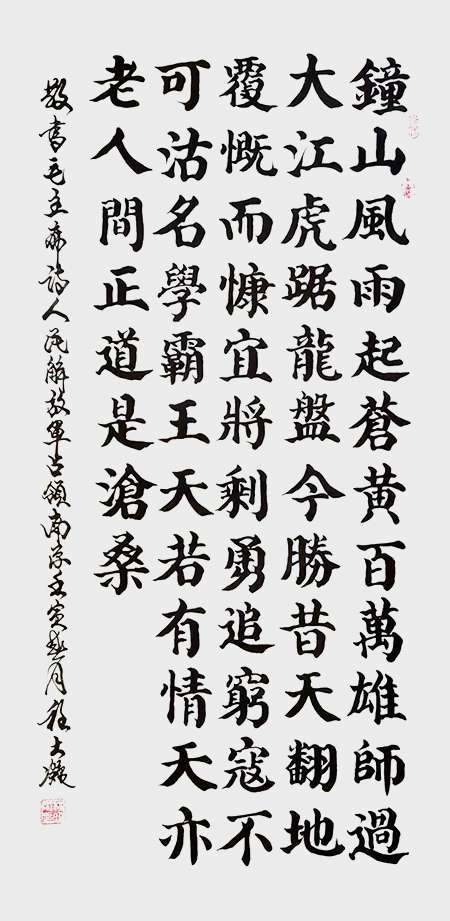 鐘山風雨起蒼黄百萬雄師過
大江虎踞龍盤今勝昔天翻地
覆慨而慷宜將剩勇追窮寇不
可沽名學霸王天若有情天亦
老人間正道是滄桑
敬書毛主席詩人民解放軍占領南京壬寅月